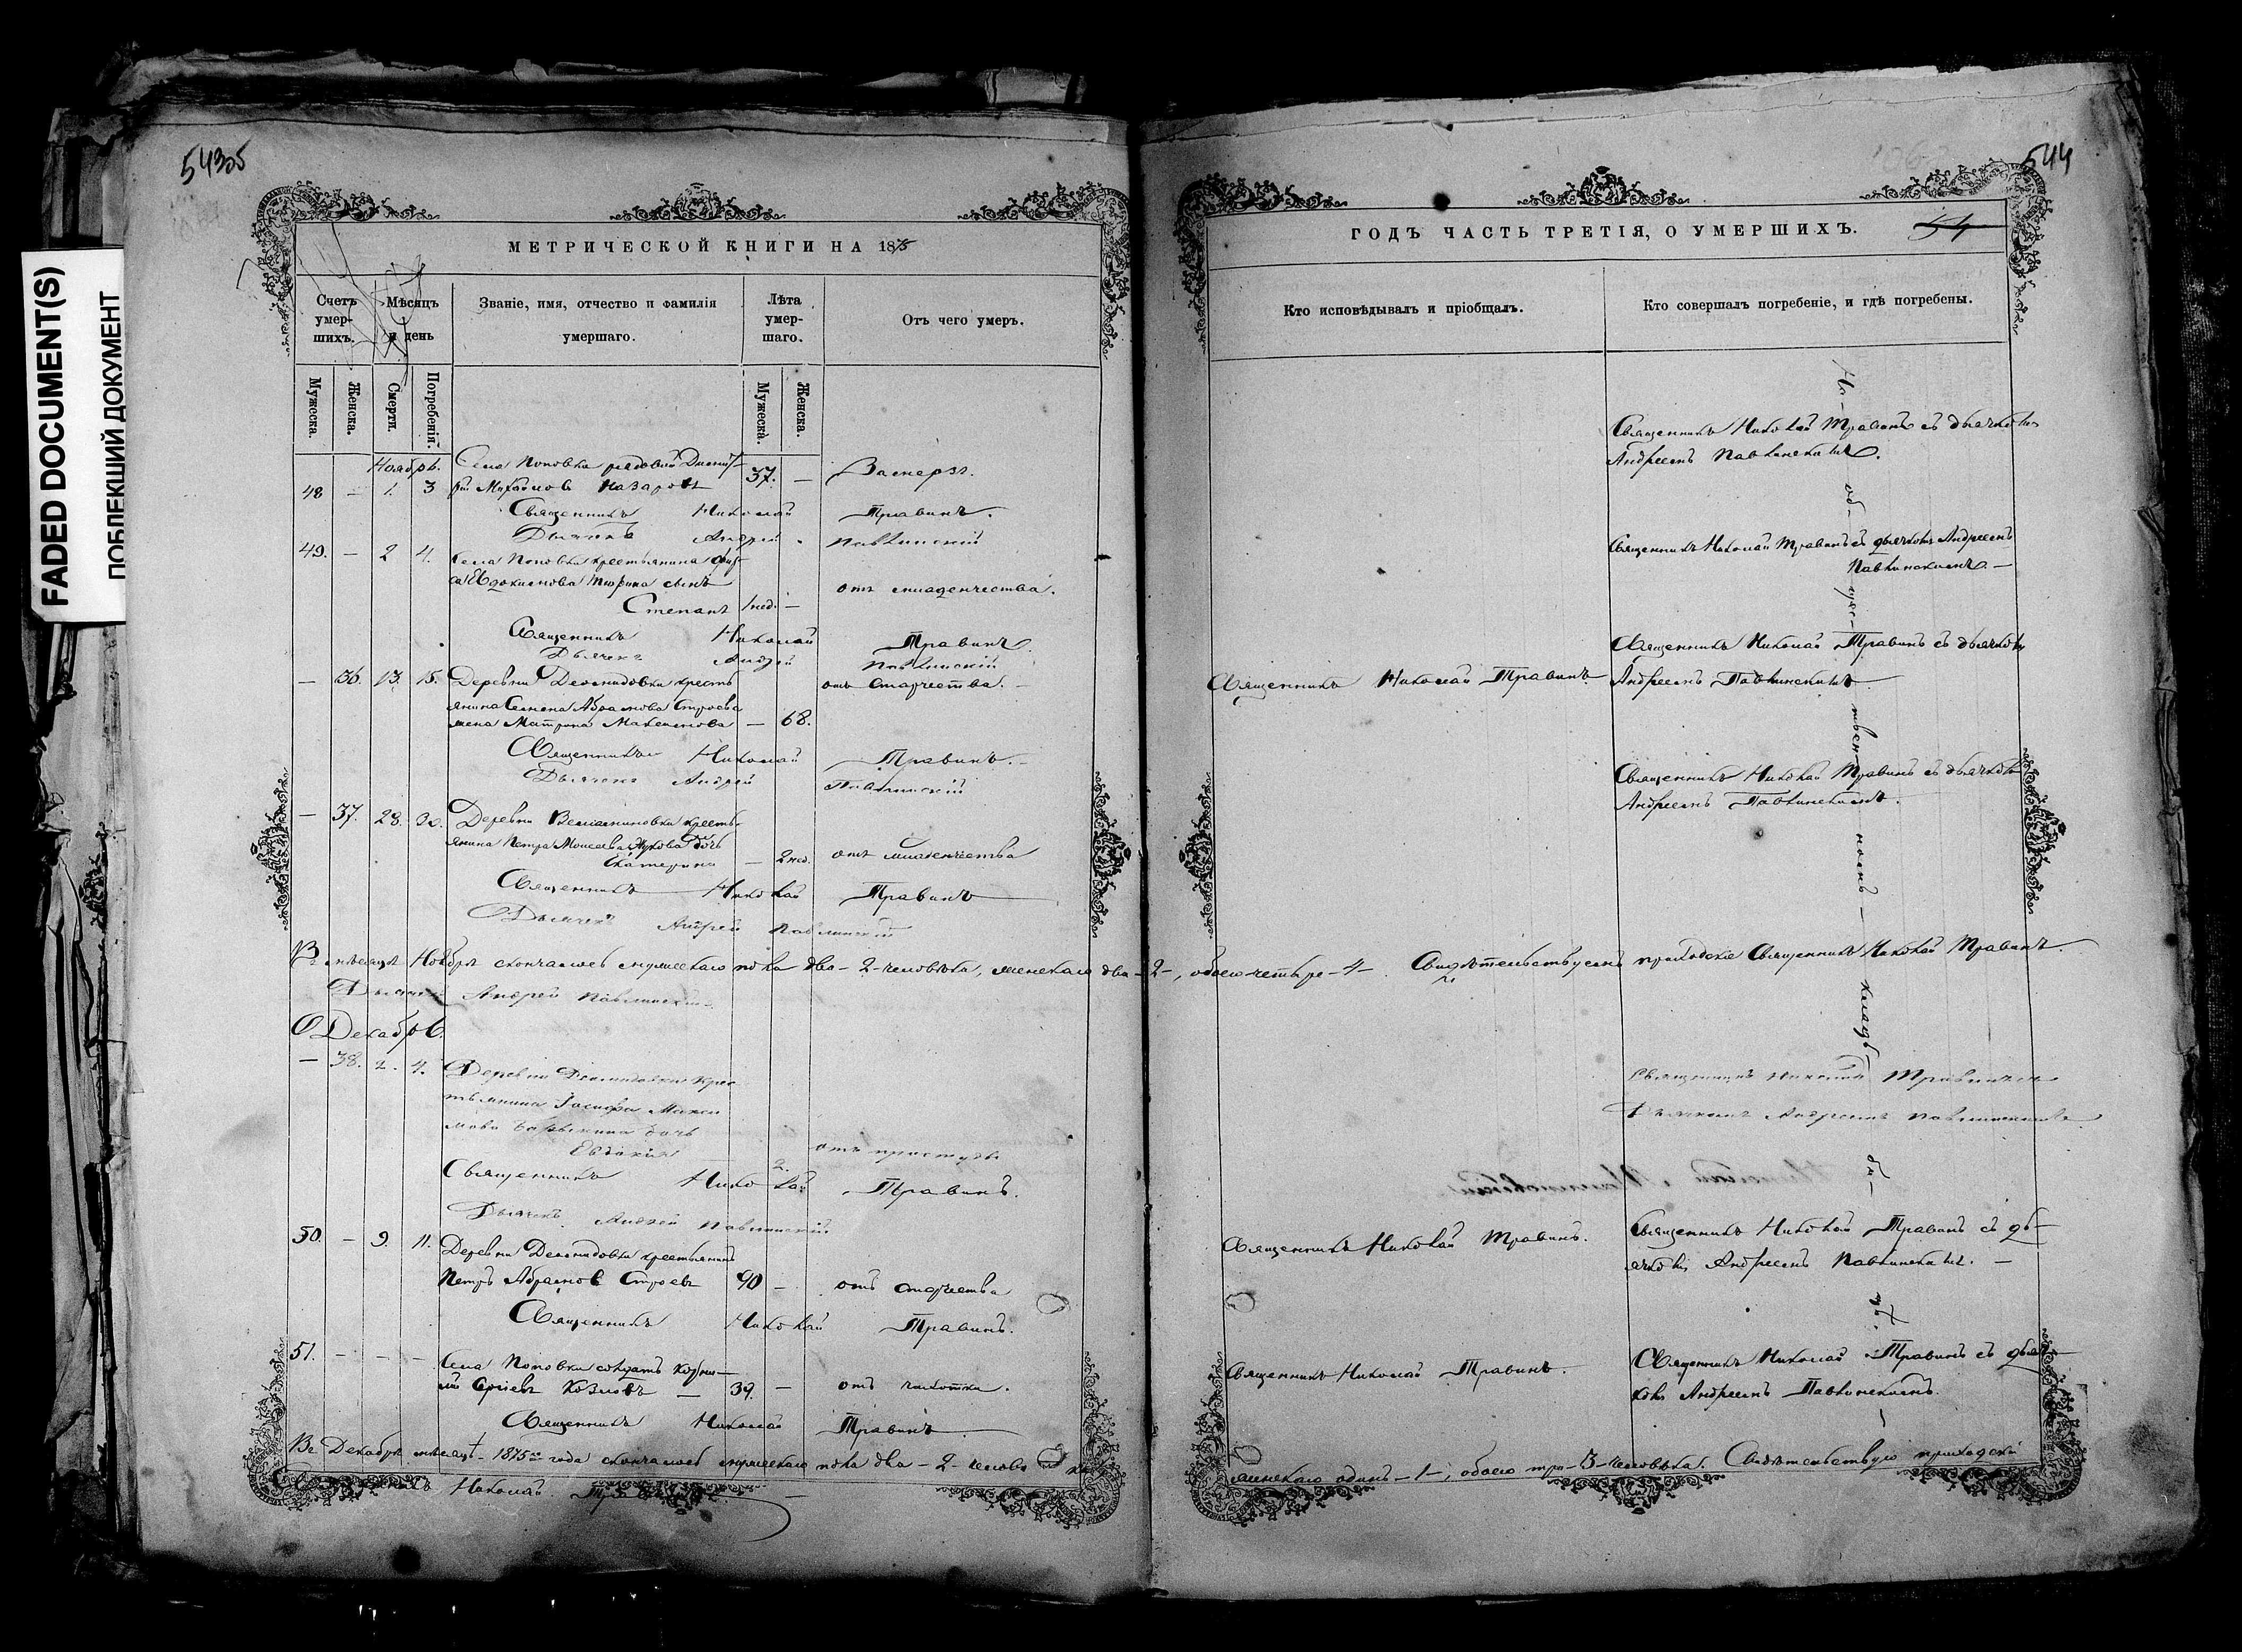 543об
544
FADED DOCUMENT(S)
ПОБЛЕКШИЙ ДОКУМЕНТ
МЕТРИЧЕСКОЙ КНИГИ НА 1875
Счетъ умер-шихъ.
Мѣсяцъ и день
Званіе, имя, отчество и фамилія умершаго.
Лѣта умер-шаго.
Отъ чего умеръ.
Мужеска.
Женска.
Смерти.
Погребенія.
Мужеска.
Женска.
Ноябрь.
Села Поповки рядовой Дмит-
48 – 1. 3 рій Михайловъ Назаровъ 37. – Замерзъ.
Священникъ Николай Травинъ.
Дьячекъ Андрей Павлинскій
49. – 2 4. Села Поповки крестьянина
Евдокимова Тюрина сынъ
Степанъ 1 нед. – отъ младенчества.
Священникъ Николай Травинъ
Дьячекъ Андрей Павлинскій
– 36. 13. 15. Деревни Демидовки кресть
янина Семена Абрамова Строева
жена Матрона Максимова – 68. отъ старчества. –
Священникъ Николай Травинъ. –
Дьячекъ Андрей Павлинскій
– 37. 28. 30. Деревни Вельяминовки кресть-
янина Петра Моисеева дочь
Екатерина – 2 нед. отъ младенчества
Священникъ Николай Травинъ
Дьячекъ Андрей Павлинскій
Въ мѣсяцѣ Ноябрѣ скончалось мужескаго пола два – 2 – человѣка, женскаго два – 2 –, обоего четыре – 4 – . Свидѣтельствуемъ приходскіе Священникъ Николай Травинъ.
Дьячекъ Андрей Павлинскій.
Декабрь.
– 38. 2. 4. Деревни Демидовки крес
тьянина Іосифа Макси
мова дочь
Евдокія 2. отъ простуды
Священникъ Николай Травинъ.
Дьячекъ Андрей Павлинскій
50. – 9. 11. Деревни Демидовки крестьянинъ
Петръ Абрамовъ Строевъ 90 – отъ старчества
Священникъ Николай Травинъ.
51. – – – Села Поповки солдатъ Корни-
лій Сергѣевъ Козловъ – 39. – отъ чахотки.
Священникъ Николай Травинъ
Въ Декабрѣ мѣсяцѣ 1875 года скончалось мужескаго пола два – 2 –
Священникъ Николай Травинъ
ГОДЪ ЧАСТЬ ТРЕТІЯ, О УМЕРШИХЪ.
54
Кто исповѣдывалъ и пріобщалъ.
Кто совершалъ погребеніе, и гдѣ погребены.
Священникъ Николай Травинъ съ дьячкомъ
Андреемъ Павлинскимъ.
Священникъ Николай Травинъ съ дьячкомъ Андреемъ
Павлинскимъ. –
Священникъ Николай Травинъ съ дьячкомъ
Священникъ Николай Травинъ Андреемъ Павлинскимъ.
Священникъ Николай Травинъ съ дьячкомъ
Андреемъ Павлинскимъ.
Священникъ Николай Травинъ съ
Дьячкомъ Андреемъ Павлинскимъ.
Священникъ Николай Травинъ. Священникъ Николай Травинъ съ дь-
ячкомъ Андреемъ Павлинскимъ. –
Священникъ Николай Травинъ. Священникъ Николай Травинъ съ дьяч-
комъ Андреемъ Павлинскимъ.
женскаго одинъ – 1 –, обоего три – 3 – человѣка. Свидѣтельствую приходскій
На – об – ще – ственномъ – кладб – ищѣ.